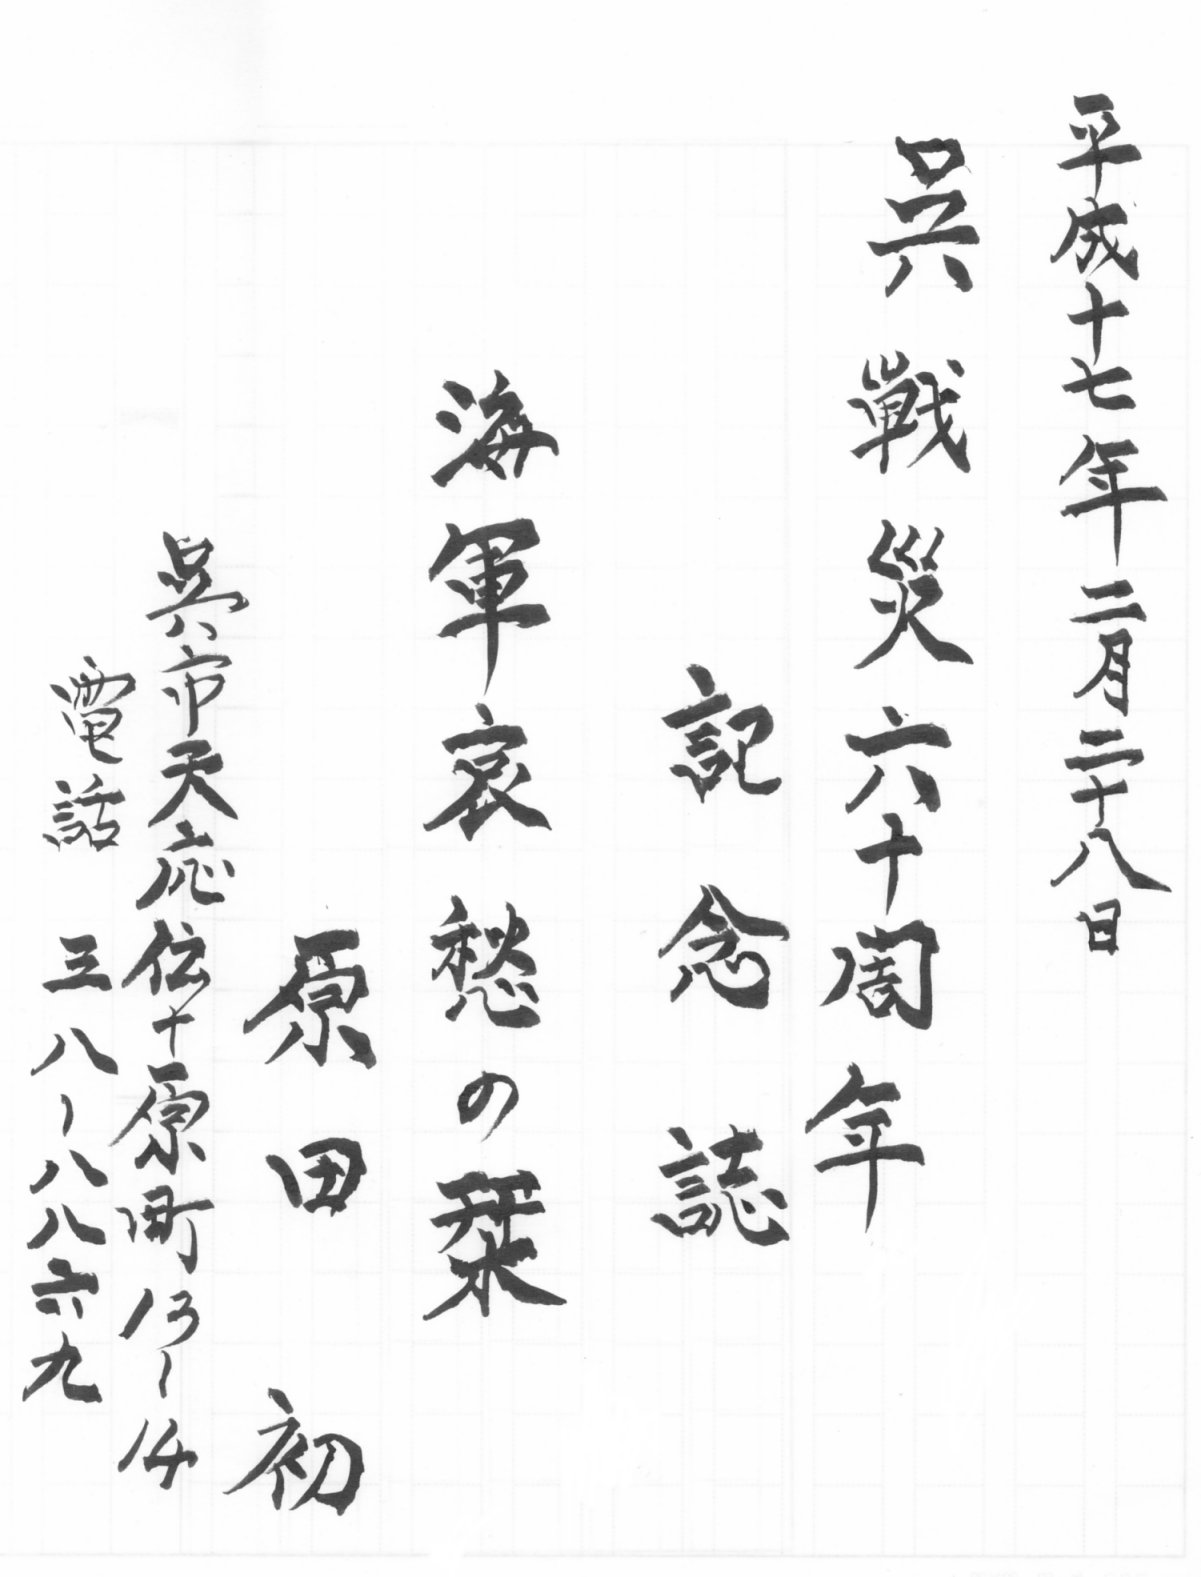 平成十七年二月二十八日
呉戦災六十周年
記念誌
海軍哀愁の栞
原田初
呉市天応伝十原町13-14
電話 三八-八八六九